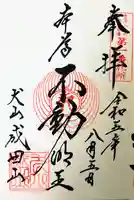 奉拝
令和五年
八月五日
本尊
不動明王
犬山成田山